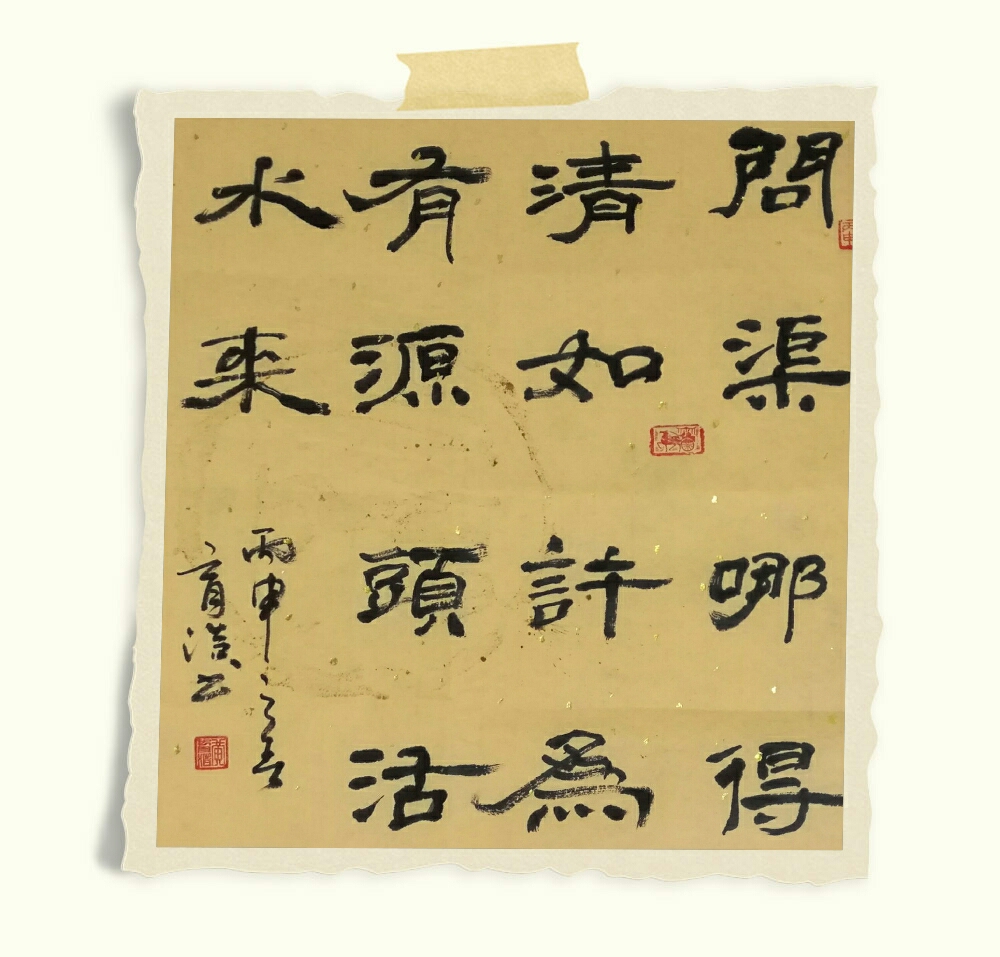 問渠哪得
清如許為
有源頭活
水来
丙申之春
育浩书
丙申